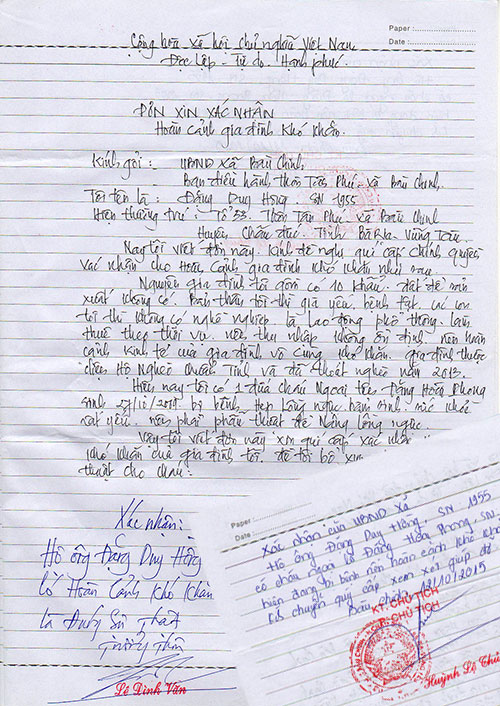 Paper :
Date :
Cộng hòa xã hội chủ nghĩa Việt Nam
Độc Lập - Tự do. Hạnh phúc.
ĐƠN XIN XÁC NHẬN
Hoàn cảnh gia đình khó khăn.
Kính gởi : - UBND xã Bàu Chinh.
- Ban điều hành thôn Tân Phú. xã Bàu Chinh.
Tôi tên là : Đặng Duy Hồng. SN 1955
Hiện thường trú : Tổ 53. Thôn Tân Phú. xã Bàu Chinh
Huyện Châu Đức. Tỉnh Bà Rịa Vũng Tàu.
Nay tôi viết đơn này. Kính đề nghị quí cấp chính quyền
xác nhận cho hoàn cảnh gia đình khó khăn như sau.
Nguyên gia đình tôi gồm có 10 khẩu. đất để sản
xuất không có. Bản thân tôi thì già yếu. bệnh tật. các con
tôi thì không có nghề nghiệp. là lao động phổ thông. làm
thuê theo thời vụ. nên thu nhập không ổn định. nên hoàn
cảnh kinh tế của gia đình vô cùng khó khăn. gia đình thuộc
diện Hộ Nghèo chuẩn Tỉnh và đã thoát nghèo năm 2013.
Hiện nay tôi có 1 đứa cháu Ngoại tên Đặng Hoài Phong
sinh 27/10/2014 bị bệnh Hẹp lồng ngực bẩm sinh. sức khỏe
rất yếu. nên phải phẫu thuật để nâng lồng ngực.
Vậy tôi viết đơn này xin quí cấp xác nhận
khó khăn của gia đình tôi. để tôi bổ xin
thuật cho cháu.
Xác nhận:
Hộ ông Đặng Duy Hồng
có Hoàn cảnh khó khăn
là đúng sự thật
Trưởng thôn
Lê Đình Văn
Paper :
Date :
Xác nhận của UBND xã
Hộ ông Đặng Duy Hồng. SN 1955
có cháu ngoại là Đặng Hoài Phong. SN
hiện đang bị bệnh nên hoàn cảnh khó khăn
Kính chuyển quý cấp xem xét giúp đỡ
Bàu Chinh, 12/10/2015
KT. CHỦ TỊCH
P. CHỦ TỊCH
Huỳnh Lê Thủ